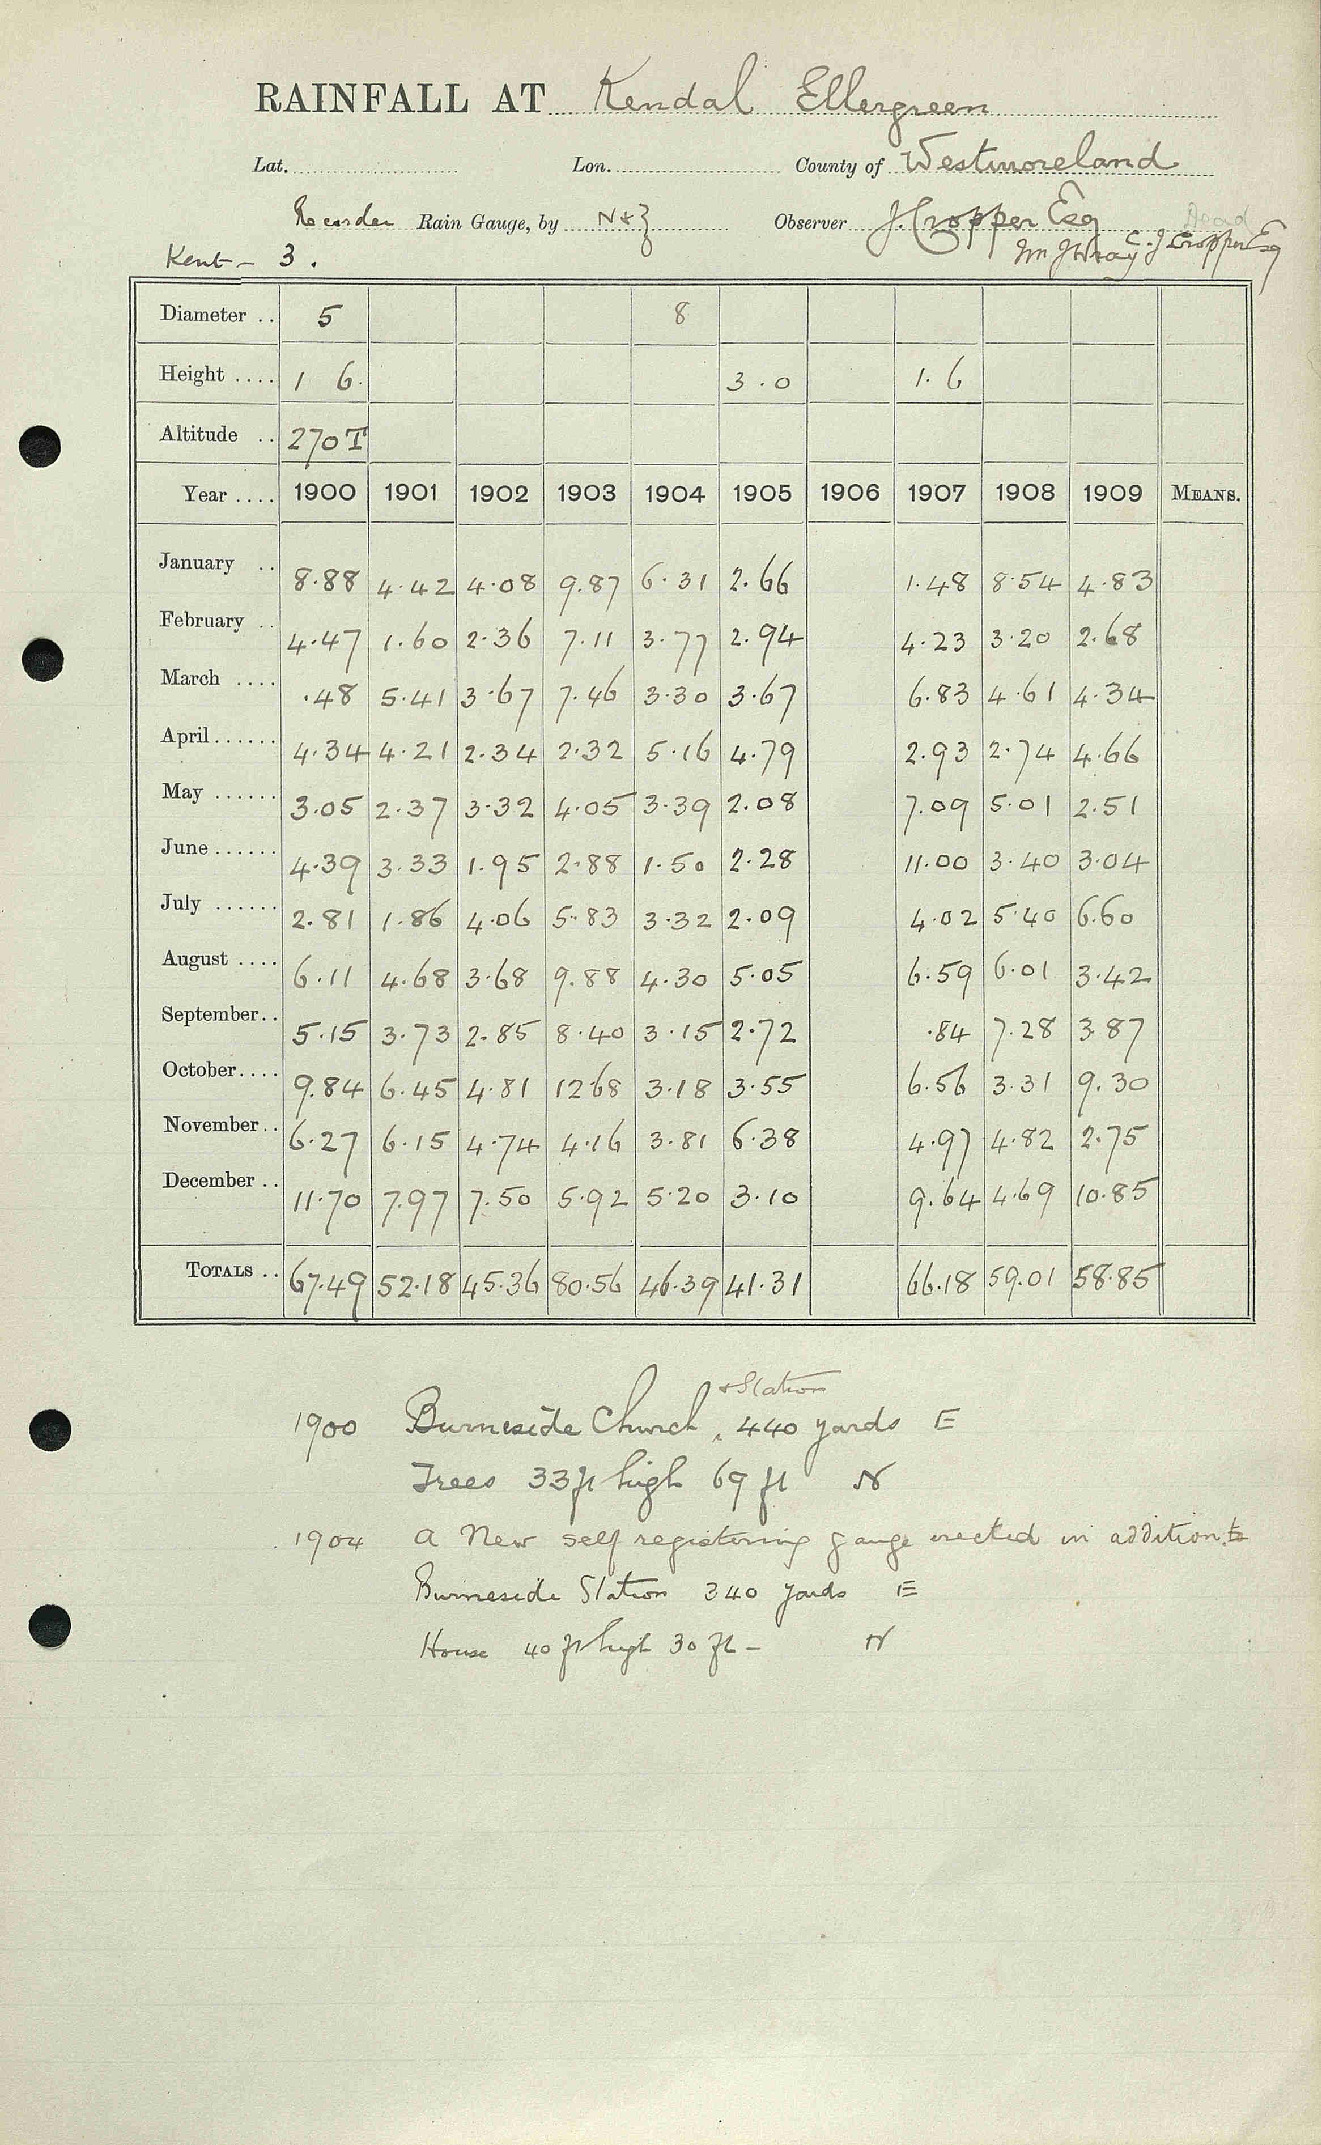 RAINFALL AT Kendal Ellergreen
Lat. Lon. County of Westmoreland
Recorder Rain Gauge, by N&Z Observer J. Cropper Esq Dead
Kent - 3. Wm J Wray C. J Cropper Esq
Diameter .. 5 8
Height .... 1 6. 3.0 1.6
Altitude .. 270 T
Year .... 1900 1901 1902 1903 1904 1905 1906 1907 1908 1909 MEANS.
January .. 8.88 4.42 4.08 9.87 6.31 2.66 1.48 8.54 4.83
February .. 4.47 1.60 2.36 7.11 3.77 2.94 4.23 3.20 2.68
March .... .48 5.41 3.67 7.46 3.30 3.67 6.83 4.61 4.34
April...... 4.34 4.21 2.34 2.32 5.16 4.79 2.93 2.74 4.66
May ...... 3.05 2.37 3.32 4.05 3.39 2.08 7.09 5.01 2.51
June...... 4.39 3.33 1.95 2.88 1.50 2.28 11.00 3.40 3.04
July ...... 2.81 1.86 4.06 5.83 3.32 2.09 4.02 5.40 6.60
August .... 6.11 4.68 3.68 9.88 4.30 5.05 6.59 6.01 3.42
September.. 5.15 3.73 2.85 8.40 3.15 2.72 .84 7.28 3.87
October.... 9.84 6.45 4.81 12.68 3.18 3.55 6.56 3.31 9.30
November.. 6.27 6.15 4.74 4.16 3.81 6.38 4.97 4.82 2.75
December .. 11.70 7.97 7.50 5.92 5.20 3.10 9.64 4.69 10.85
TOTALS .. 67.49 52.18 45.36 80.56 46.39 41.31 66.18 59.01 58.85
+ Station
1900 Burneside Church, 440 yards E
Trees 33 ft high 69 ft N
1904 A New self registering gauge erected in addition to
Burneside Station 340 yards E
House 40 ft high 30 ft - N